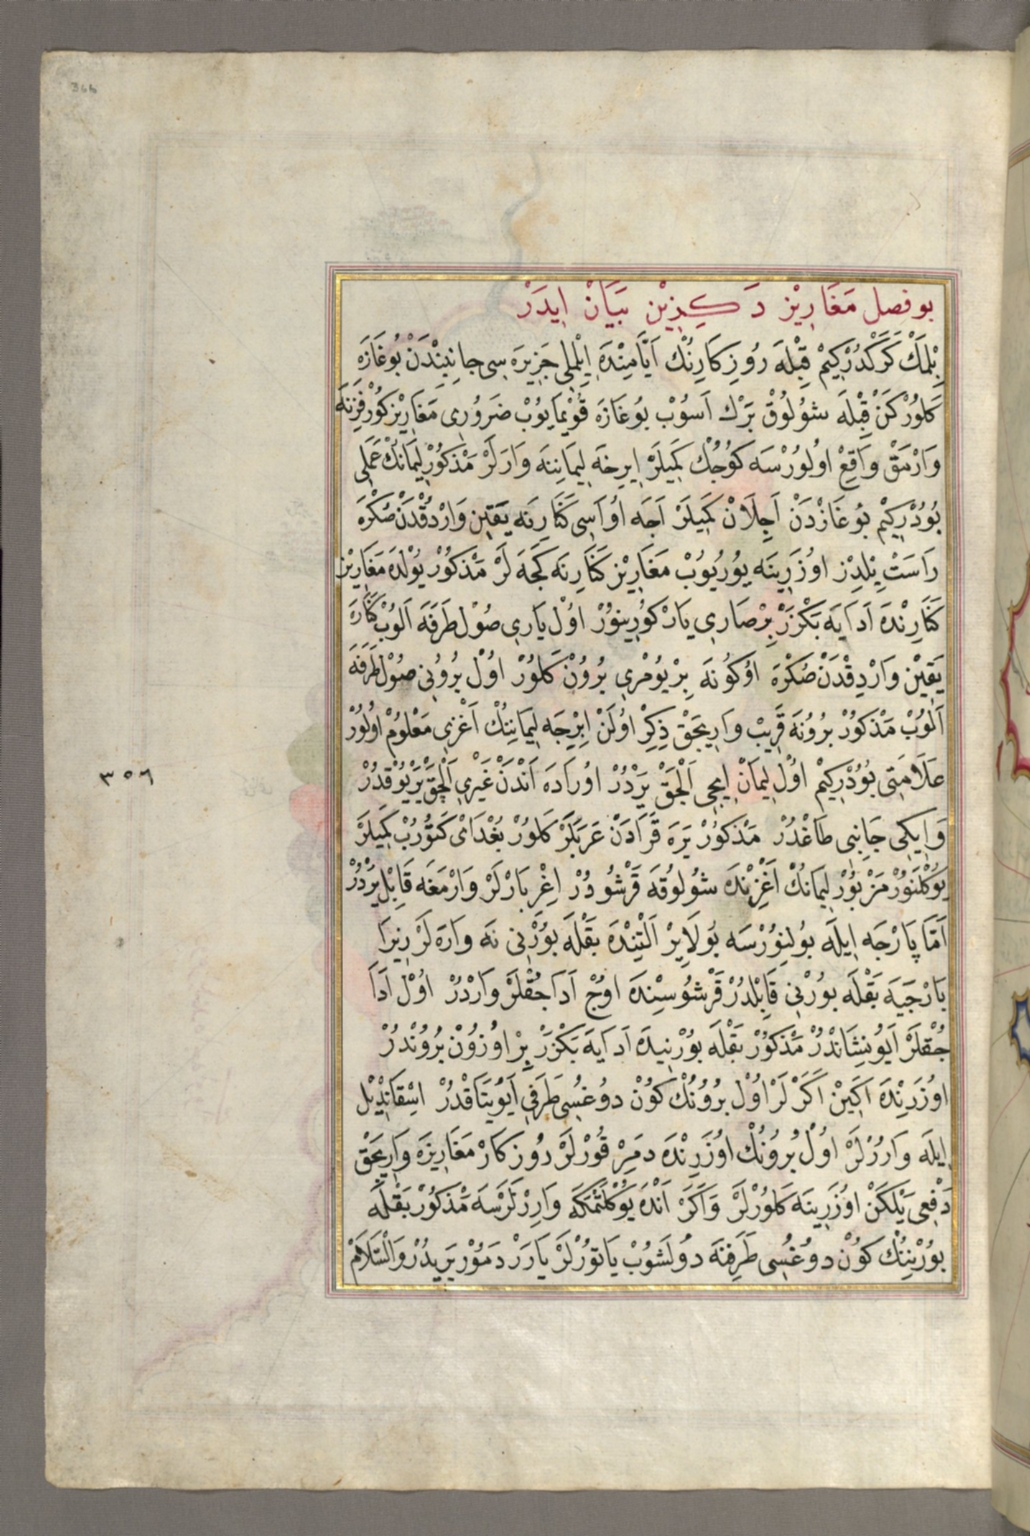 بو فصل مَغَارِيْز دَكِزِيْن بَيَانْ اِيدَرْ
بِلْمَكْ كَرَكْدُرْكِيمْ قِبْلَه رُوزِكَارِنُكْ اَيَّامِنْدَه اِيْلِمْلِى جَزِيرَه سِى جَانِبِنْدَنْ بُوغَازَه
كَلُورْكَنْ قِبْلَه شُولُوقْ بَرْك اَسُوبْ بُوغَازَه قُوْيمَايُوبْ ضَرُورِى مَغَارِيْز كُورْفَزِنَه
وَارْمَقْ وَاقِعْ اولُورْسَه كُوجُكْ كَمِيلَرْ اِيرِخَه لِيمَانِنَه وَارَلَرْ مَذْكُورْ لِيمَانُكْ عَمَلِى
بُودُرْكِيْم بُوغَازْدَنْ اَچِلَانْ كَمِيلَرْ اَجَه اُوَاسِى كَنَارِنَه يَقِينْ وَارْدُقْدَنْ صُكْرَه
رَاسَتْ يِلْدِزْ اوُزَرِينَه يُورُيُوبْ مَغَارِيْز كَنَارِنَه كَجَه لَرْ مَذْكُورْ يُولْدَه مَغَارِيْز
كَنَارِنْدَه اَدَايَه بَكْزَرْ بِرْ صَارِي يَارْ كُورِينُورْ اوُل يَارِى صُولْ طَرَفَه اَلُوبْ كَنَارَه
يَقِيْن وَارْدِقْدَنْ صُكْرَه اوُكُونَه بِرْ يُومْرِي بُرُونْ كَلُورْ اوُل بُرُونِى صُولْ طَرَفَه
اَلُوبْ مَذْكُورْ بُرُونَه قَرِيبْ وَارِيجَقْ ذِكِرْ اوُلَنْ اِيرِجَه لِيمَانِنُكْ اَغْزِى مَعْلُومْ اولُورْ
عَلَامَتِى بُودُرْكِيمْ اوُلْ لِيمَانْ اِيچِى اَلْچَقْ يَرْدُرْ اورَادَه اَنْدَنْ غَيْرِي اَلْچَقْ يَرْ يُوقْدُرْ
وَايكِى جَانِبِى طَاغْدُرْ مَذْكُورْ يَرَه قَرَادَنْ عَرَبَلَرْ كَلُورْ بُغْدَاى كَتُورُبْ كَمِيلَرْ
يُوكْلَنُورْ مَزْبُورْ لِيمَانُكْ اَغْزِنْدَه شُولُوقَه قَرْشُودُرْ اِغْرِبَارْلَرْ وَارْمَغَه قَابِلْ يَرْدُرْ
اَمَّا پَارْجَه اِيلَه بُولِنُورْسَه بُولَايِرْ اَلْتِنْدَه بَقْلَه بُورْنِى نَه وَارَه لَرْ زِيرَا
بَارْجَيَه بَقْلَه بُورْنِى قَابِلْدُرْ قَرْشُوسِنْدَه اوُچْ اَدَاجُقْلَرْ وَارْدُرْ اوُل اَدَا
جُقْلَرْ اَيُو نِشَانْدُرْ مَذْكُورْ بَقْلَه بُورْنِيدَه اَدَايَه بَكْزَرْ بِرْ اوُزُونْ بُرُونْدُرْ
اوُزَرِنْدَه اَكِينْ اَكَرْلَرْ اوُلْ بُرُونُكْ كُونْ دُوغُسِى طَرَفِى اَيُو يَتَاقْدُرْ اسْقَانْدِيْل
اِيلَه وَارُرْلَرْ اوُل بُرُونُكْ اوُزَرِنْدَه دَمِرْ قُورْلَرْ رُوزكَارْ مَغَارِيزَه وَارِيجَقْ
دَفْعِى يَلْكَنْ اوُزَرِينَه كَلُورْلَرْ وَاَكَرْ اَنْدَه يُوكْلَنْمَكَه وَارِرْلَرْسَه مَذْكُورْ بَقْلَه
بُورْنِنُكْ كُونْ دُوغُسِى طَرَفِنَه دُولَشُوبْ يَاتُورْلَرْ يَارَرْ دَمُورْ يَرِيدُرْ وَالسَّلَامْ
٣٥٦